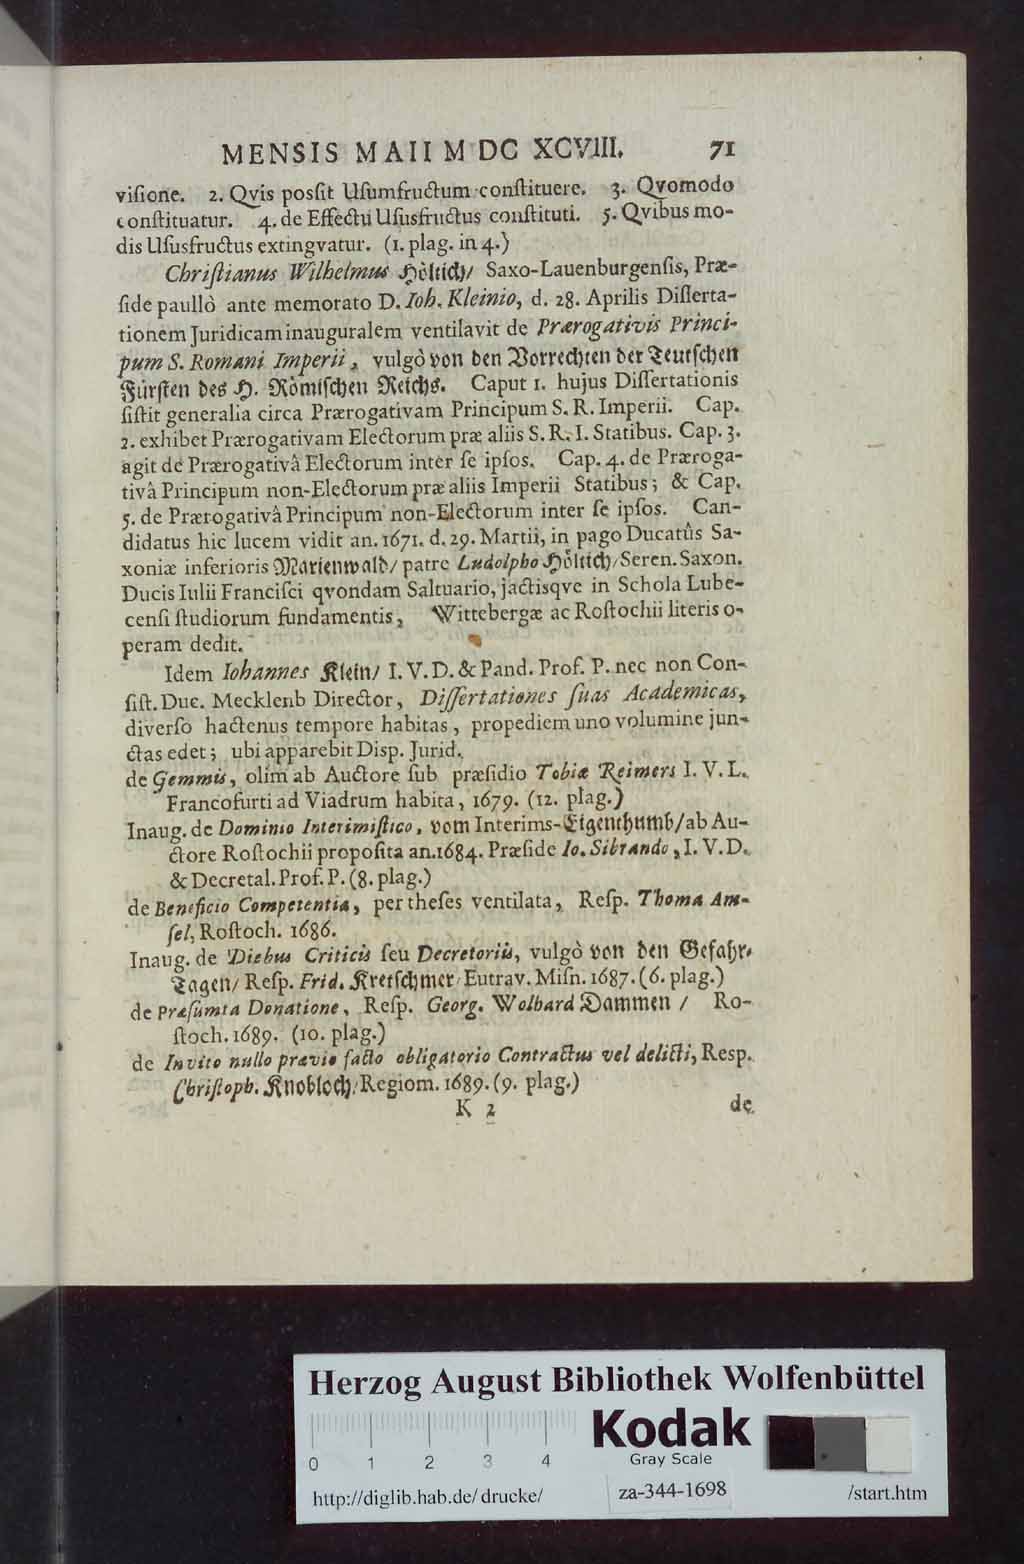 MENSIS MAII M DC XCVIII. 71
viſione. 2. Qvis posſit Uſumfructum conſtituere. 3. Qvomodo
conſtituatur. 4. de Effectu Uſusfructus conſtituti. 5. Qvibus mo-
dis Uſusfructus extingvatur. (1. plag. in 4.)
Chriſtianus Wilhelmus Höltich/ Saxo-Lauenburgenſis, Præ-
ſide paullò ante memorato D. Ioh. Kleinio, d. 28. Aprilis Diſſerta-
tionem Juridicam inauguralem ventilavit de Prærogativis Princi-
pum S. Romani Imperii, vulgò von den Vorrechten der Teutſchen
Fürſten des H. Römiſchen Reichs. Caput 1. hujus Diſſertationis
ſiſtit generalia circa Prærogativam Principum S. R. Imperii. Cap.
2. exhibet Prærogativam Electorum præ aliis S. R. I. Statibus. Cap. 3.
agit de Prærogativâ Electorum inter ſe ipſos. Cap. 4. de Præroga-
tivâ Principum non-Electorum præ aliis Imperii Statibus; & Cap.
5. de Prærogativâ Principum non-Electorum inter ſe ipſos. Can-
didatus hic lucem vidit an. 1671. d. 29. Martii, in pago Ducatûs Sa-
xoniæ inferioris Marienwald/ patre Ludolpho Höltich/ Seren. Saxon.
Ducis Iulii Franciſci qvondam Saltuario, jactisqve in Schola Lube-
cenſi ſtudiorum fundamentis, Wittebergæ ac Roſtochii literis o-
peram dedit.
Idem Iohannes Klein/ I. V. D. & Pand. Prof. P. nec non Con-
ſiſt. Duc. Mecklenb Director, Diſſertationes ſuas Academicas,
diverſo hactenus tempore habitas, propediem uno volumine jun-
ctas edet; ubi apparebit Disp. Jurid.
de Gemmis, olim ab Auctore ſub præſidio Tobiæ Reimers I. V. L.
Francofurti ad Viadrum habita, 1679. (12. plag.)
Inaug. de Dominio Interimiſtico, vom Interims-Eigenthumb/ ab Au-
ctore Roſtochii propoſita an. 1684. Præſide Io. Sibrando, I. V. D.
& Decretal. Prof. P. (8. plag.)
de Beneficio Competentiæ, per theſes ventilata, Reſp. Thoma Am-
ſel, Roſtoch. 1686.
Inaug. de Diebus Criticis ſeu Decretoriis, vulgò von den Gefahr-
Tagen/ Reſp. Frid. Kretſchmer Eutrav. Miſn. 1687. (6. plag.)
de Præſumta Donatione, Reſp. Georg. Wolbard Dammen / Ro-
ſtoch. 1689. (10. plag.)
de Invito nullo prævio facto obligatorio Contractus vel delicti, Resp.
Chriſtoph. Knobloch/ Regiom. 1689. (9. plag.)
K 2 de
Herzog August Bibliothek Wolfenbüttel
Kodak
Gray Scale
0 1 2 3 4
http://diglib.hab.de/drucke/ za-344-1698 /start.htm